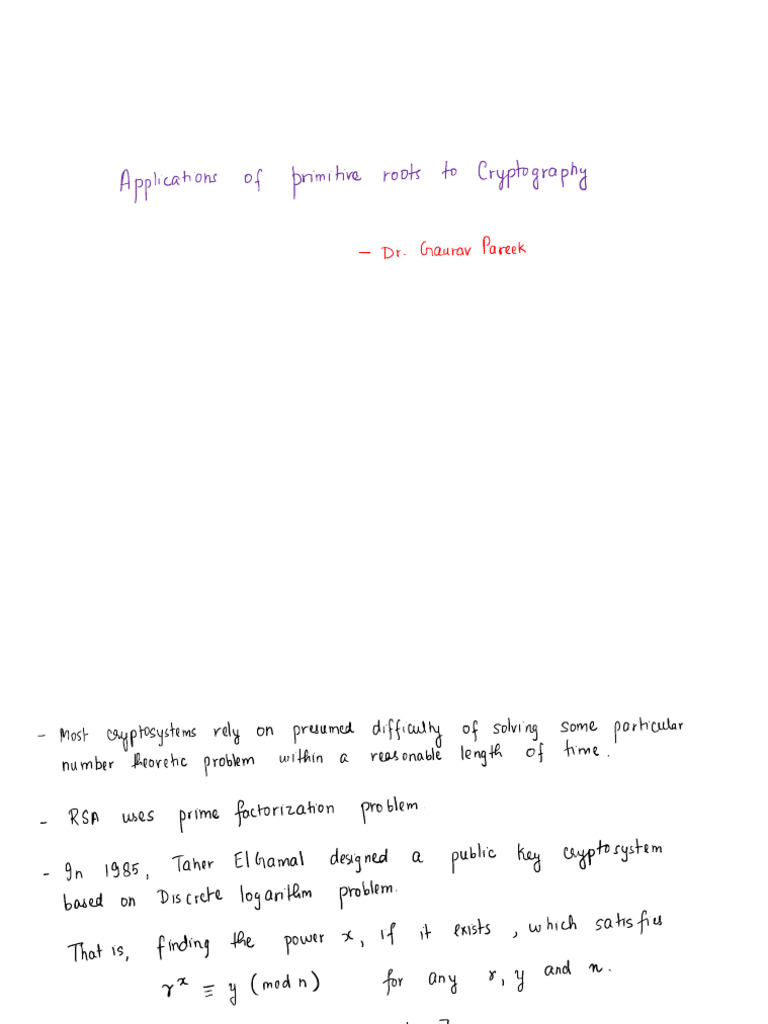 Applications of primitive roots to Cryptography
– Dr. Gaurav Pareek
- Most cryptosystems rely on presumed difficulty of solving some particular
number theoretic problem within a reasonable length of time.
- RSA uses prime factorization problem.
- In 1985, Taher ElGamal designed a public key cryptosystem
based on Discrete logarithm problem.
That is, finding the power x, if it exists, which satisfies
r^x ≡ y (mod n) for any r, y and n.